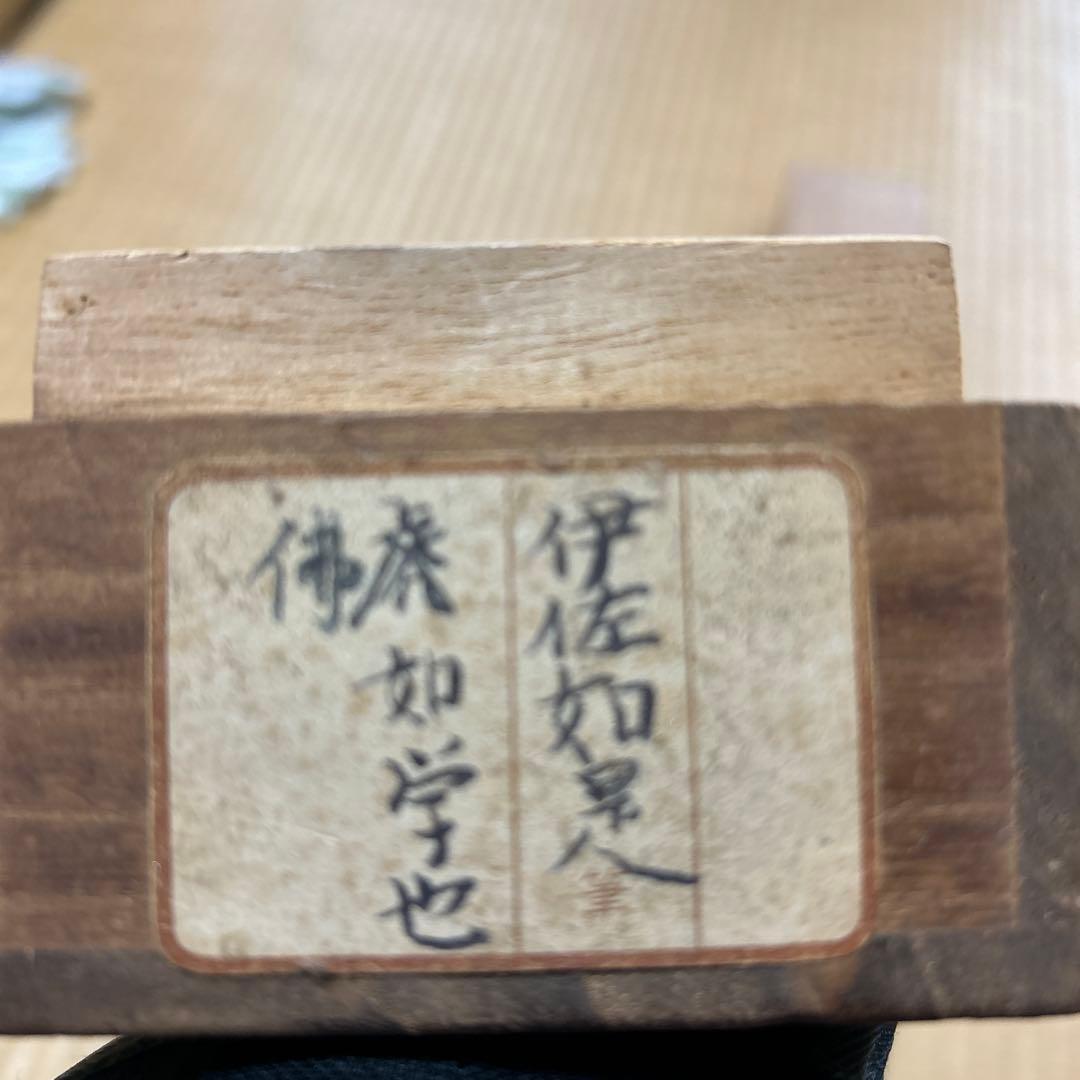 伊佐如泉人筆
如学也
佛